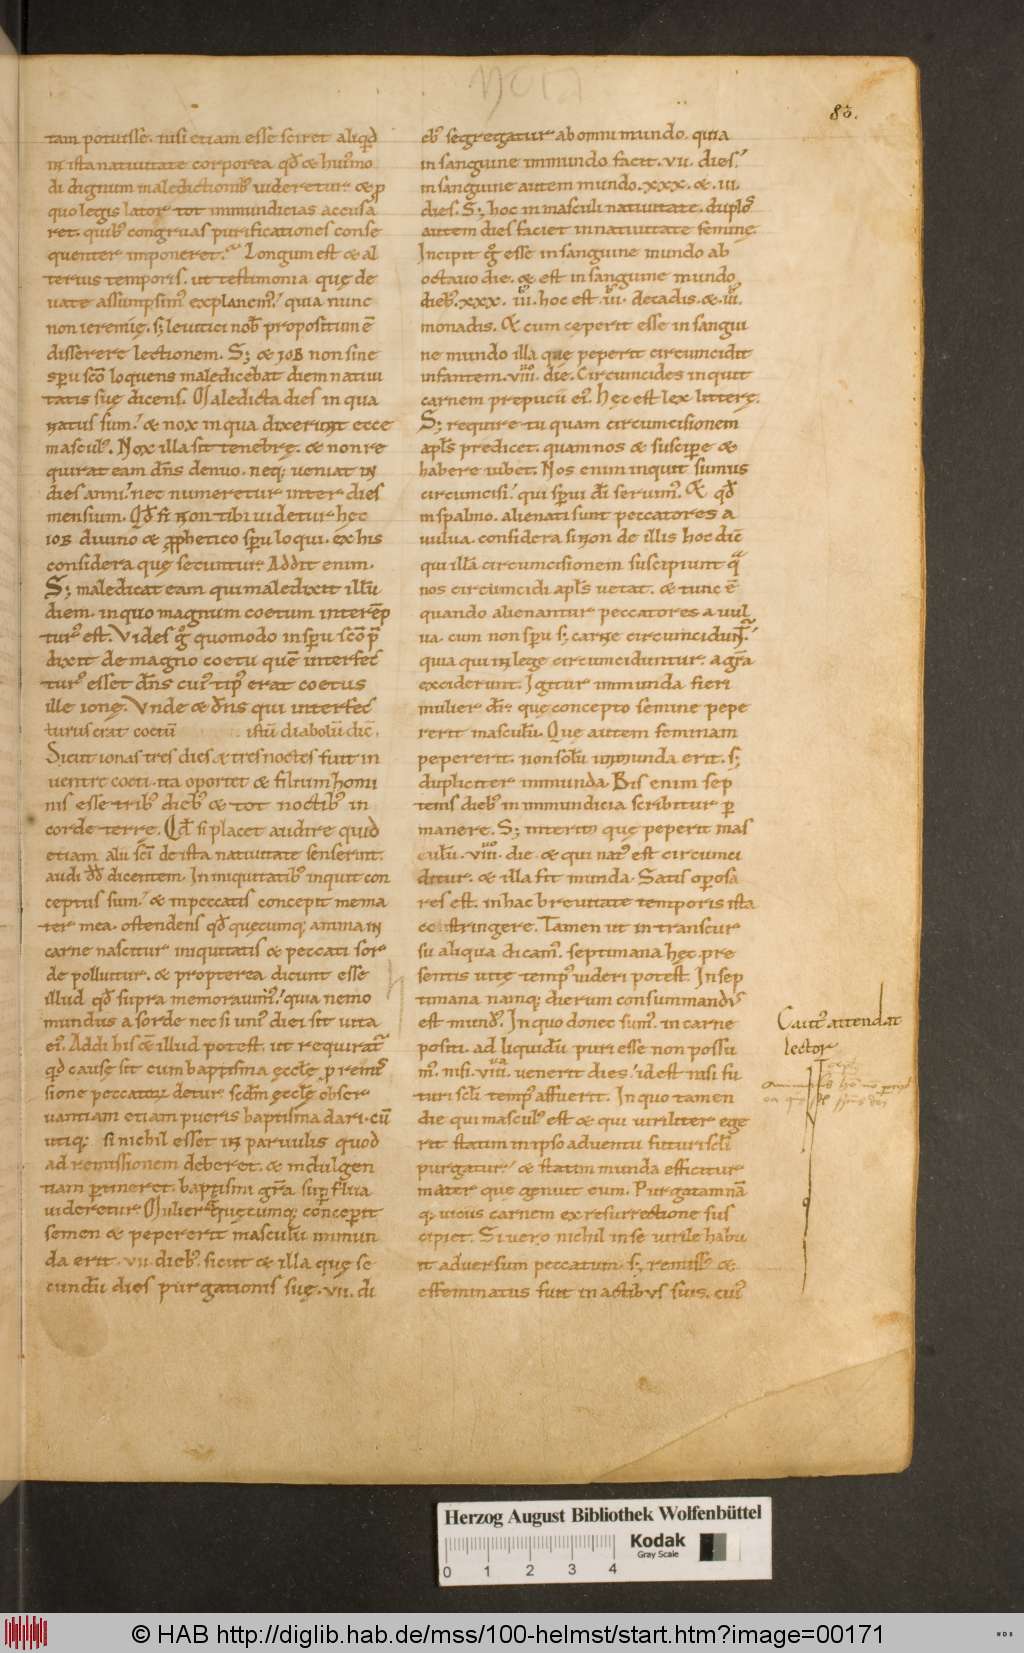 NOTA
83.
tam potuisse. nisi etiam esse sciret aliqd̄
in ista natiuitate corporea qd̄ & hui᾽mo
di dignum maledictionib; uideretur. & p̄
quo legis lator tot inmundicias accusa
ret. quib; congruas purificationes conse
quenter imponeret. Longum est & al
terius temporis. ut testimonia quę de
uate assumpsim᾽ explanem᾽. quia nunc
non ieremię. s; leuitici nob̄ propositum ē
disserere lectionem. S; & IOB non sine
sp̄u sc̄o loquens maledicebat diem natiui
tatis suę dicens. Maledicta dies in qua
natus sum. & nox in qua dixerunt ecce
mascul᾽. Nox illa sit tenebrę. & non re
quirat eam dn̄s denuo. neq; ueniat in
dies anni. nec numeretur inter dies
mensium. Qd̄ si non tibi uidetur hęc
IOB diuino & pphetico sp̄u loqui. ex his
considera quę secuntur. Addit enim.
S; maledicat eam qui maledixit illū
diem. in quo magnum coetum interēp
tur᾽ est. Vides g̊ quomodo in sp̄u sc̄o p̄
dixit de magno coetu quē interfec
tur᾽ esset dn̄s cui᾽ tip᾽ erat coetus
ille ionę. Vnde & dn̄s qui interfec
turus erat coetū istū diabolū dic̄.
Sicut ionas tres dies & tres noctes fuit in
uentre coeti. ita oportet & filium homi
nis esse trib; dieb; & tot noctib; in
corde terre. Qd̄ si placet audire quid
etiam alii sc̄i de ista natiuitate senserint.
audi dd̄ dicentem. In iniquitatib; inquit con
ceptus sum. & in peccatis concepit me ma
ter mea. ostendens qd̄ quęcumq; anima in
carne nascitur iniquitatis & peccati sor
de polluitur. & propterea dicunt esse
illud qd̄ supra memorauim᾽. quia nemo
mundus a sorde nec si uni᾽ diei sit uita
ei᾽. Addi his & illud potest. ut requirat᾽
qd̄ causę sit cum baptisma ęcclę p remis
sione peccatorum detur. scdm̄ ęcclę obser
uantiam etiam pueris baptisma dari. cū
utiq; si nichil esset in paruulis quod
ad remissionem deberet. & indulgen
tiam ptineret. baptismi gr̄a supflua
uideretur Mulier quęcumq; conceperit
semen & pepererit masculū inmun
da erit .vii. dieb;. sicut & illa quę se
cundū dies purgationis suę .vii. di
eb; segregatur ab omni mundo. quia
in sanguine inmundo facit .vii. dies.
in sanguine autem mundo .xxx. & .iii.
dies. S; hoc in masculi natiuitate. duplos
autem dies faciet in natiuitate feminę.
Incipit g̊ esse in sanguine mundo ab
octauo die. & est in sanguine mundo
dieb; .xxx. iii. hoc est .iii. decadis. & .iii.
monadis. At cum ceperit esse in sangui
ne mundo illa quę peperit circumcidit
infantem .viii. die. Circumcides inquit
carnem prepucii ei᾽. Hęc est lex litterę.
S; require tu quam circumcisionem
apl̄s predicet. quam nos & suscipere &
habere iubet. Nos enim inquit sumus
circumcisi. qui sp̄ui dī seruim᾽. At qd̄
in spalmo. alienati sunt peccatores a
uulua. considera si non de illis hoc dic̄
qui illā circumcisionem suscipiunt q̄
nos circumcidi apl̄s uetat. & tunc ē
quando alienantur peccatores a uul
ua. cum non sp̄u s; carne circumcidunt᾽.
quia qui in lege circumciduntur a gr̄a
exciderunt. Igitur inmunda fieri
mulier dr̄. quę concepto semine pepe
rerit masculū. Que autem feminam
pepererit. non solū inmunda erit. s;
dupliciter inmunda. Bis enim sep
tenis dieb; in inmundicia scribitur p
manere. S; interim quę peperit mas
culū .viii. die. & qui nat᾽ est circumci
ditur. & illa fit munda. Satis operosa
res est. in hac breuitate temporis ista
constringere. Tamen ut in transcur
su aliqua dicam᾽. septimana hęc pre
sentis uitę temp᾽ uideri potest. In sep
timana namq; dierum consummand᾽
est mund᾽. In quo donec sum᾽. in carne
positi. ad liquidū puri esse non possu
m᾽. nisi .viii. uenerit dies. id est nisi fu
turi scl̄i temp᾽ affuerit. In quo tamen
die qui mascul᾽ est & qui uiriliter ege
rit statim in ipso aduentu futuri scl̄i
purgatur. & statim munda efficitur
mater que genuit eum. Purgatam nā
q; uiciis carnem ex resurrectione sus
cipiet. Si uero nichil in se uirile habu
it aduersum peccatum. s; remiss᾽ &
effeminatus fuit in actibus suis. cui᾽
Caut᾽ attendat
lector
Herzog August Bibliothek Wolfenbüttel
Kodak
Gray Scale
0 1 2 3 4
© HAB http://diglib.hab.de/mss/100-helmst/start.htm?image=00171
HAB